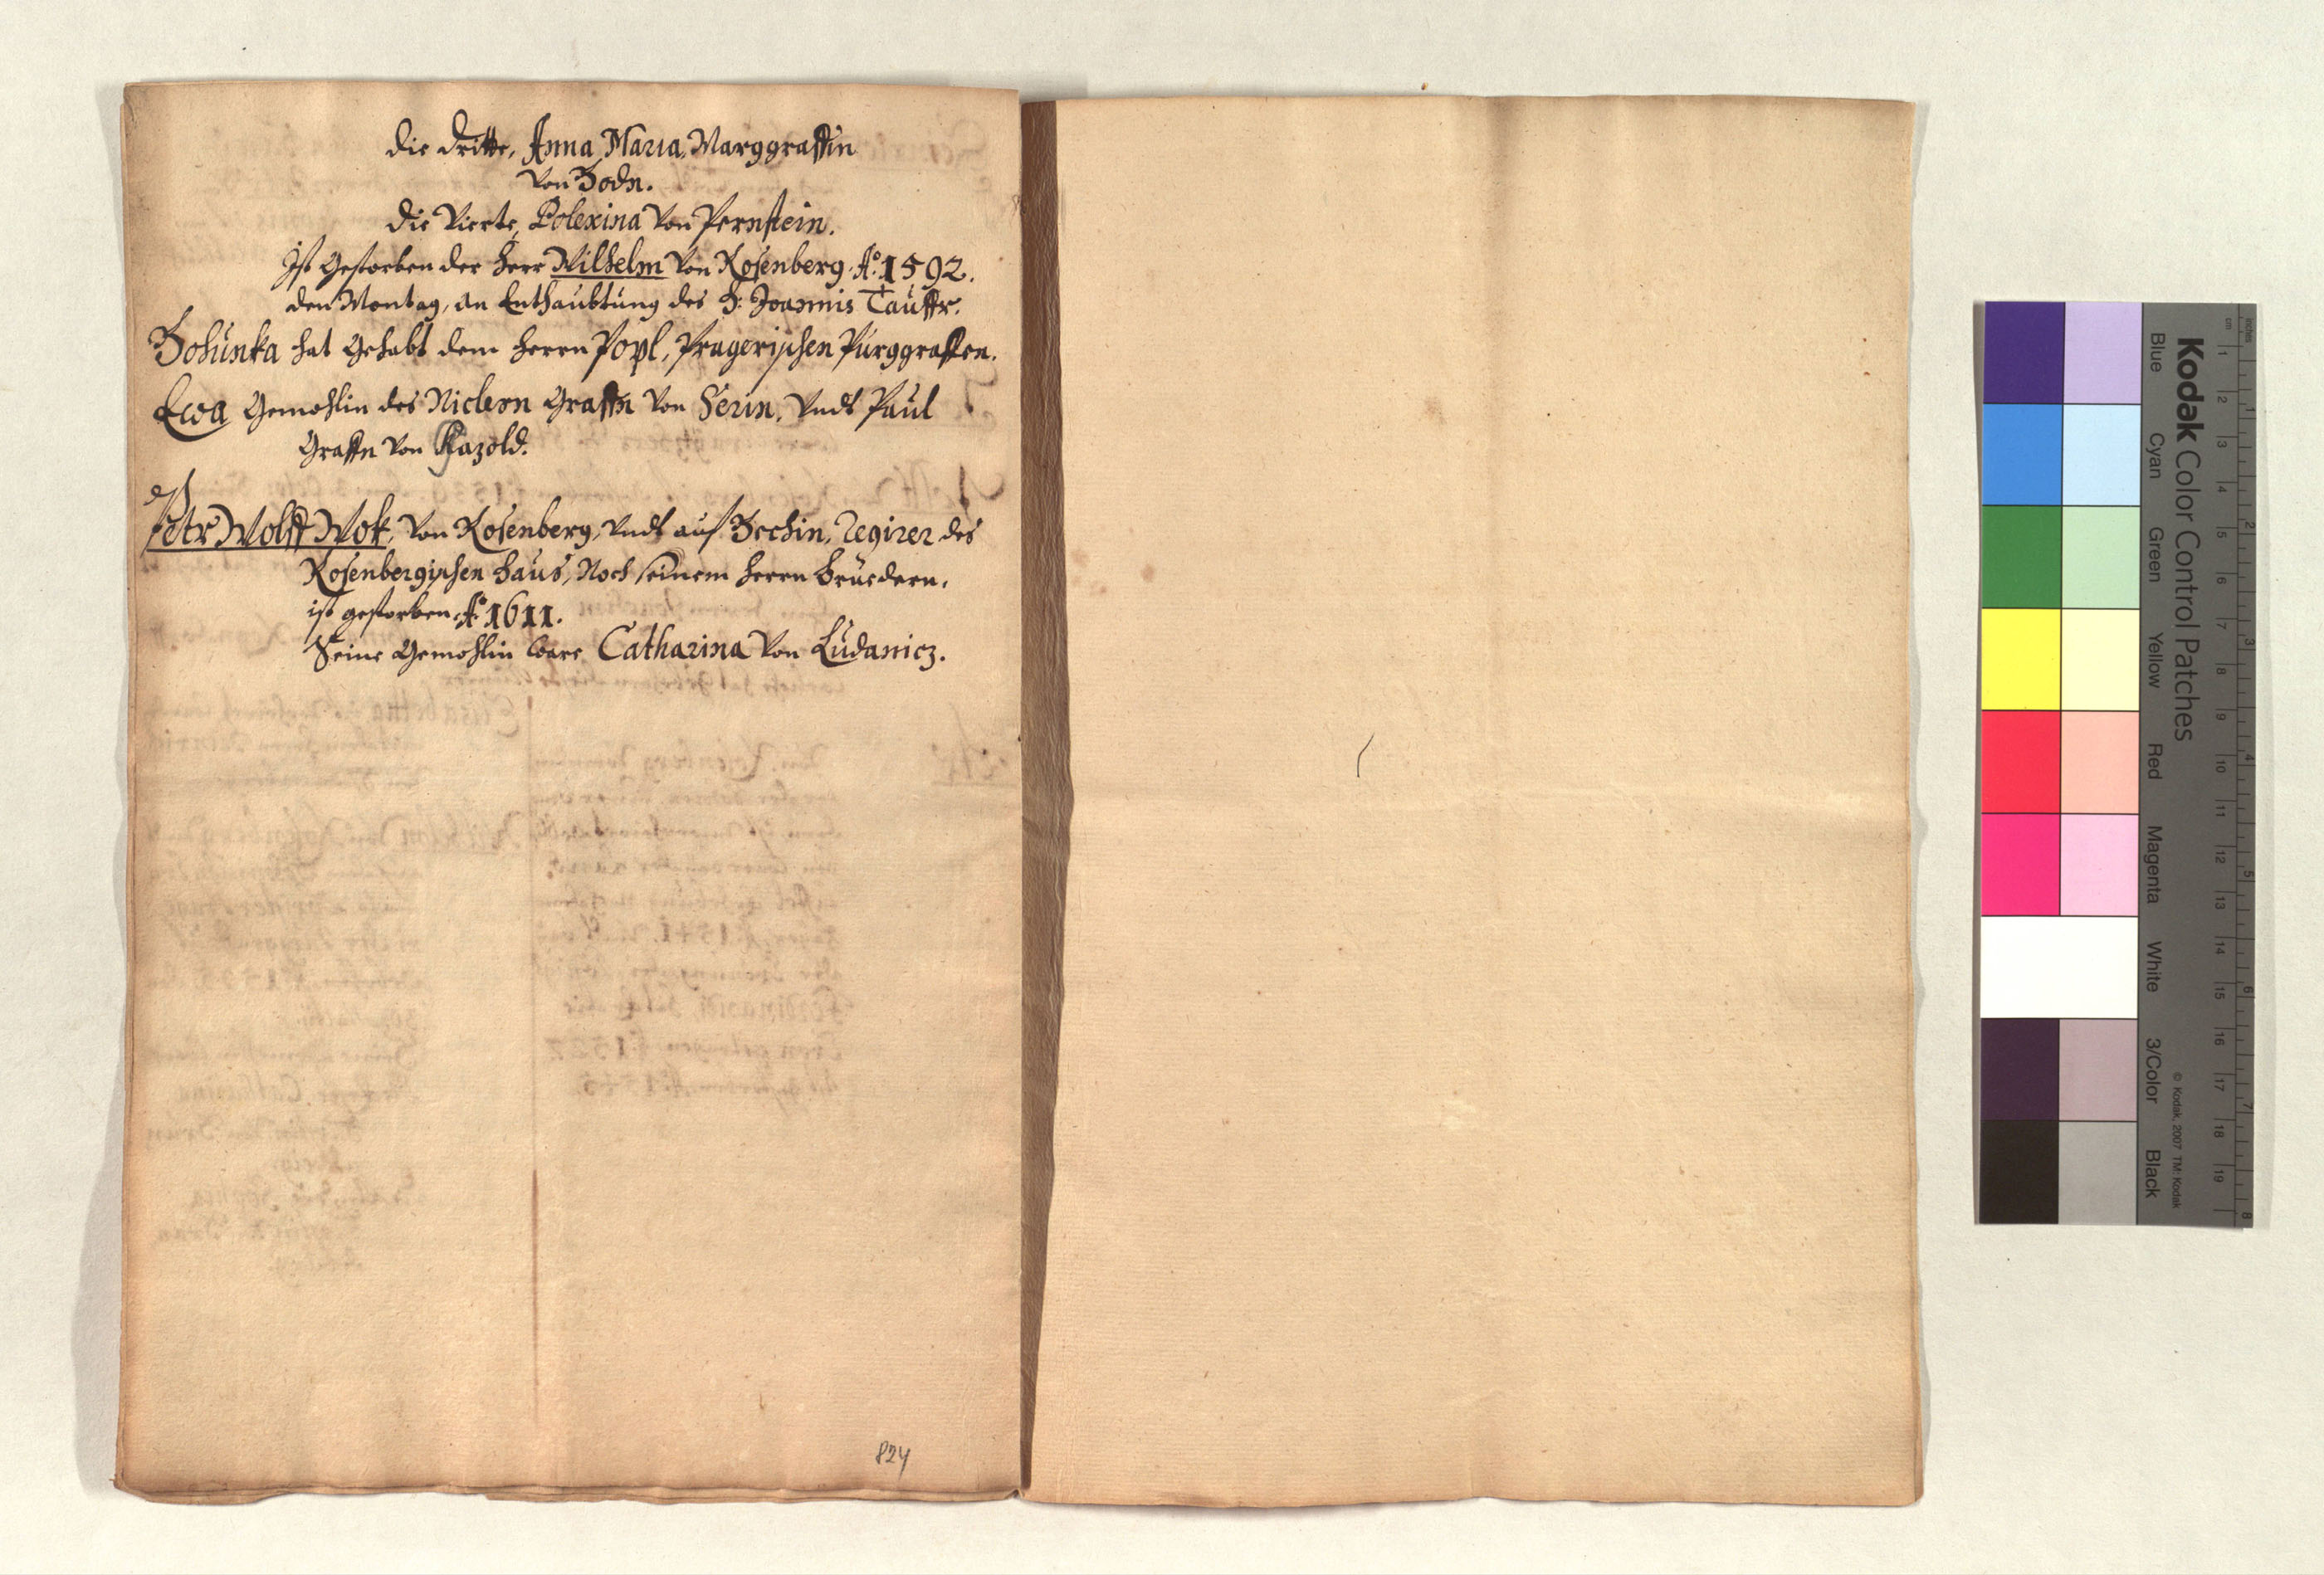 Die Dritte, Anna Maria, Marggraffin
Von Bodn.
Die Vierte, Polexina Von Pernstein.
Ist Gestorben der Herr Wilhelm Von Rosenberg. Aº. 1592.
den Montag, an Enthaubtung des H: Joannis Tauffr.
Bohunka hat Gehabt dem Herrn Popl, Pragerischen Purggraffen.
Ewa Gemohlin des Niclern Graffn Von Serin, Vndt Paul
Graffn Von Kazold.
Petr Wolff Wok, Von Rosenberg, Vndt auf Bechin, Regirer des
Rosenbergischen Haus, Noch seinem Herrn Bruedern,
ist gestorben, Aº 1611.
Seine Gemohlin ware Catharina Von Ludanicz.
824
Kodak Color Control Patches
Blue Cyan Green Yellow Red Magenta White 3/Color Black
© Kodak, 2007 TM: Kodak
inches 1 2 3 4 5 6 7 8
cm 1 2 3 4 5 6 7 8 9 10 11 12 13 14 15 16 17 18 19